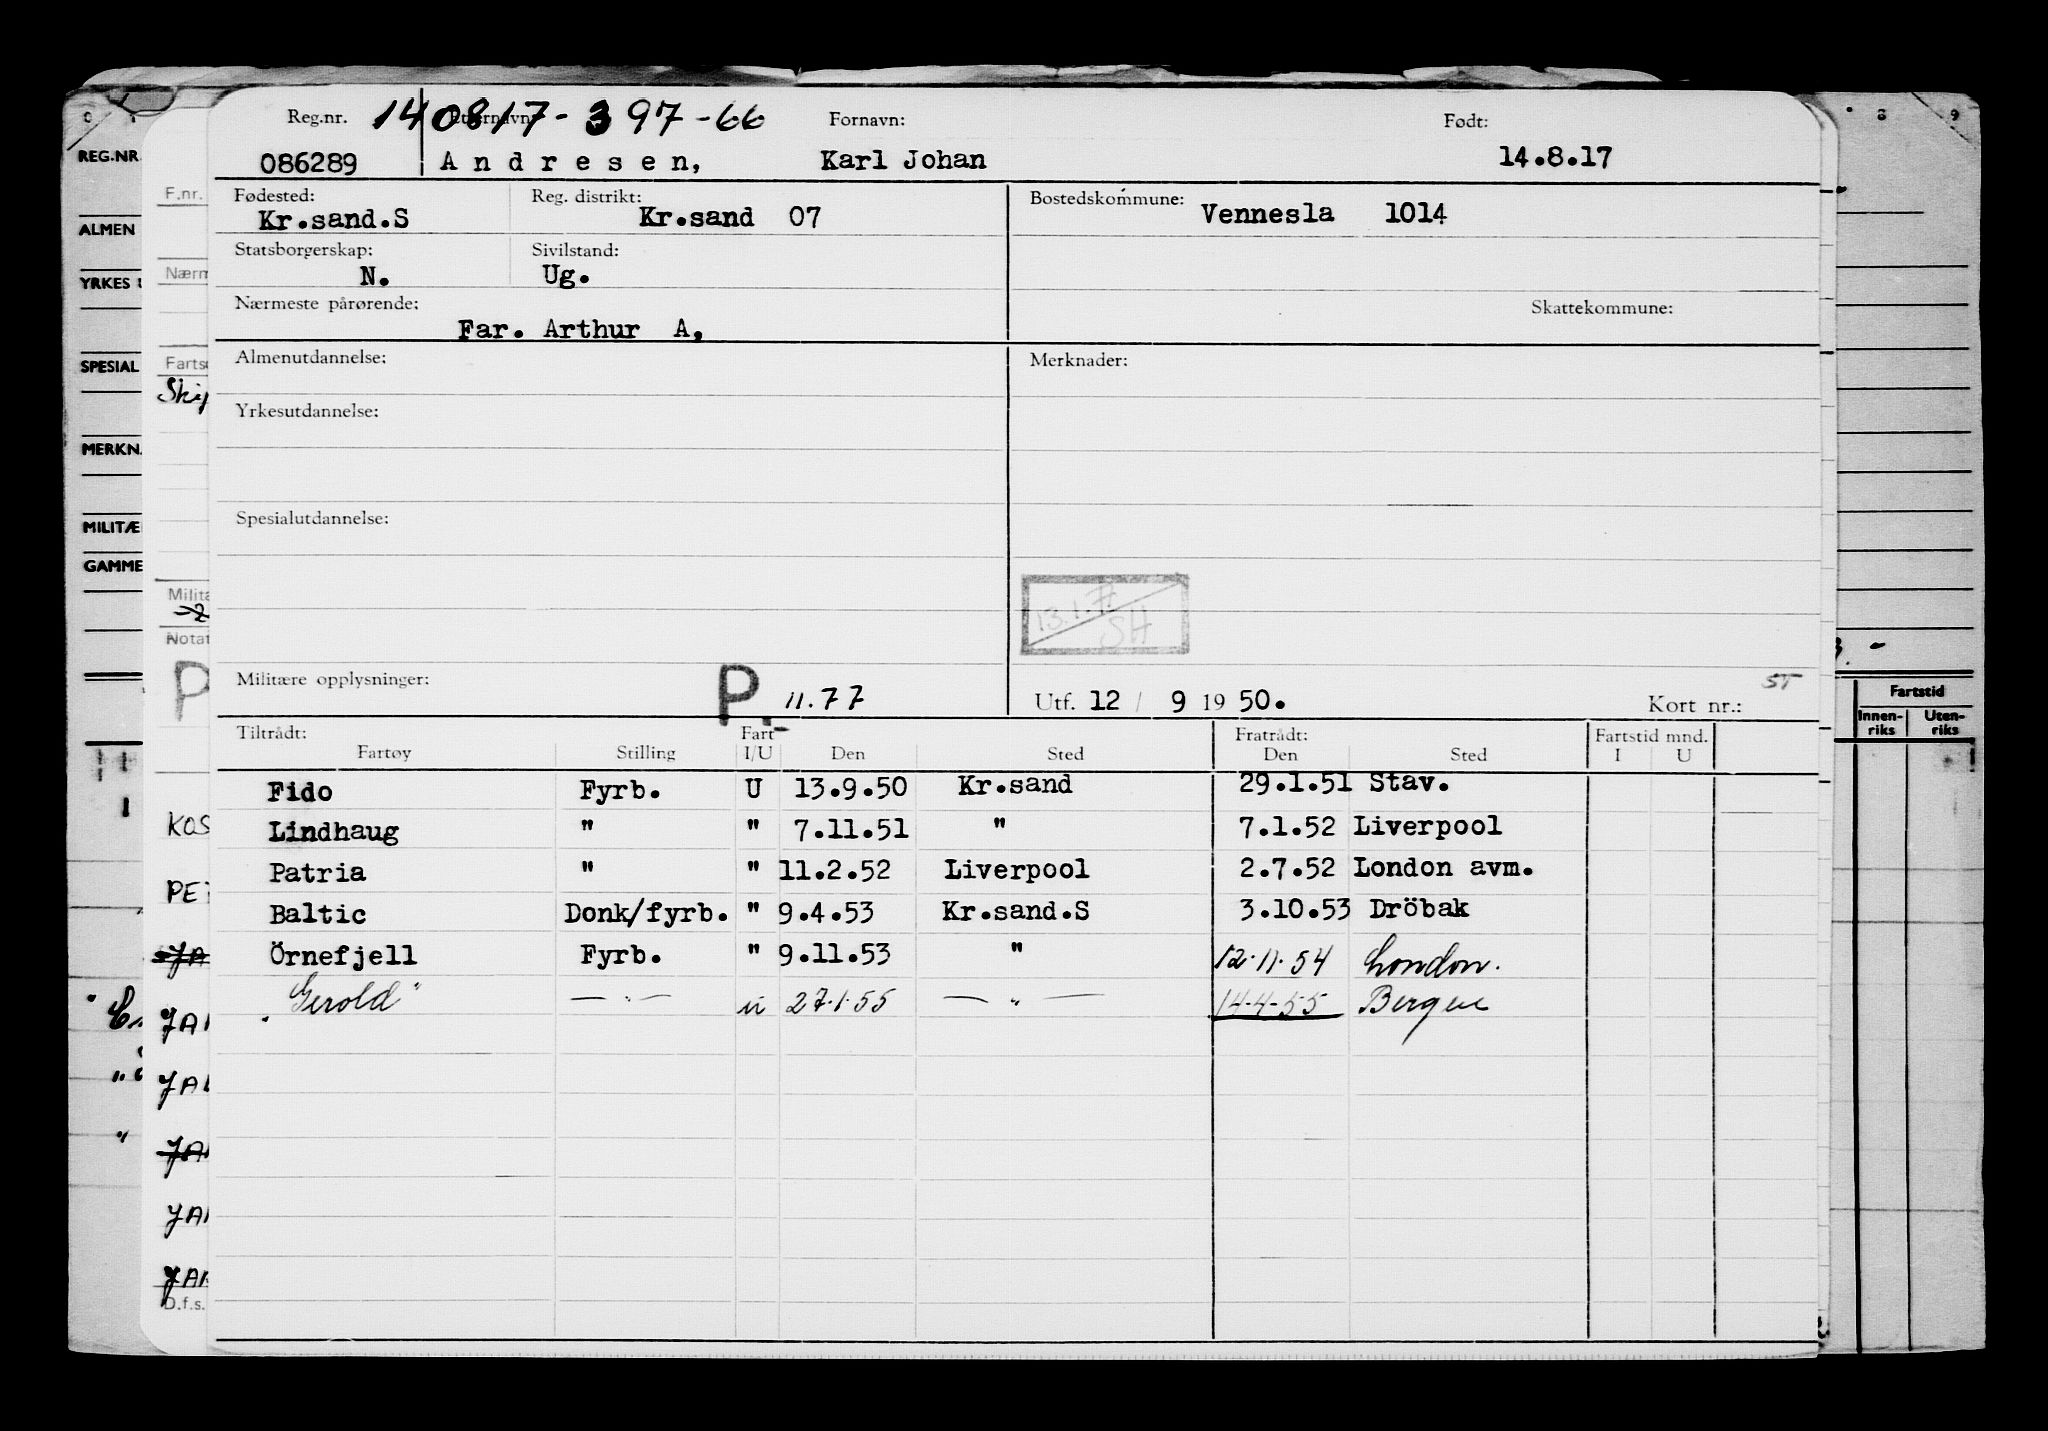 Reg.nr. 140817-397-66 Etternavn: Fornavn: Født:
086289 Andresen, Karl Johan 14.8.17
Fødested: Kr.sand.S Reg. distrikt: Kr.sand 07 Bostedskommune: Vennesla 1014
Statsborgerskap: N. Sivilstand: Ug.
Nærmeste pårørende: Far. Arthur A, Skattekommune:
Almenutdannelse: Merknader:
Yrkesutdannelse:
Spesialutdannelse:
13.1.77 SH
Militære opplysninger: P. 11.77 Utf. 12 / 9 1950. Kort nr.: ST
Tiltrådt: Fart Fratrådt: Fartstid mnd.
Fartøy Stilling I/U Den Sted Den Sted I U
Fido Fyrb. U 13.9.50 Kr.sand 29.1.51 Stav.
Lindhaug " " 7.11.51 " 7.1.52 Liverpool
Patria " " 11.2.52 Liverpool 2.7.52 London avm.
Baltic Donk/fyrb. " 9.4.53 Kr.sand.S 3.10.53 Dröbak
Örnefjell Fyrb. " 9.11.53 " 12.11.54 London.
"Gerold" — " — u 27.1.55 — " — 14.4.55 Bergen
REG.NR.
ALMEN
YRKES
SPESIAL
MERKN.
MILITÆ
GAMME
F.nr.
Nærm
Farts
Skip
Milit
Notat
P
KOS
PET
JA
JAN
JAL
JAN
JAN
JAN
D.f.s.
8 9
Fartstid
Innen-
riks Uten-
riks